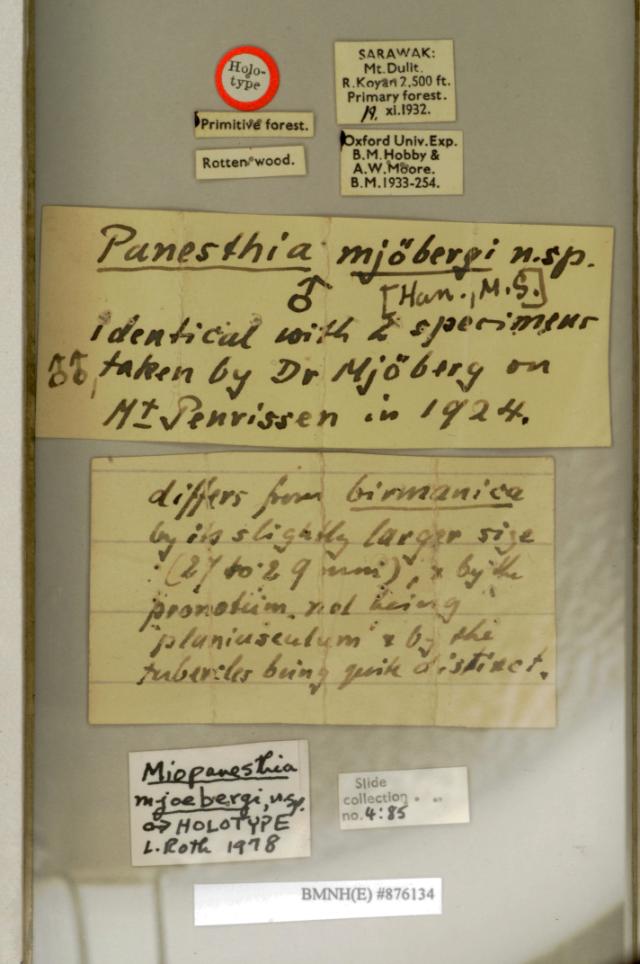 Holo-
type
SARAWAK:
Mt. Dulit.
R. Koyan 2,500 ft.
Primary forest.
19. xi.1932.
Primitive forest.
Rotten wood.
Oxford Univ. Exp.
B.M. Hobby &
A.W. Moore.
B.M. 1933-254.
Panesthia mjöbergi n.sp.
♂ [Han., M.S.]
identical with 2 specimens
♂♂, taken by Dr Mjöberg on
Mt Penrissen in 1924.
differs from birmanica
by its slightly larger size
(27 to 29 mm), & by the
pronotum not being
planiusculum & by the
tubercles being quite distinct.
Miopanesthia
mjoebergi, n.sp.
♂ HOLOTYPE
L. Roth 1978
Slide
collection
no. 4:85
BMNH(E) #876134